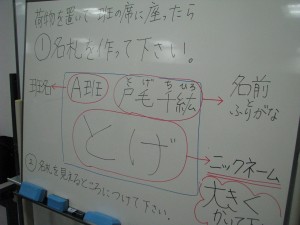 荷物を置いて班の席に座ったら
①名札を作って下さい。
班名
A班
とげ ちひろ
戸毛千紘
名前
ふりがな
とげ
ニックネーム
大きく
かいて下
②名札を見えるところにつけて下さい。